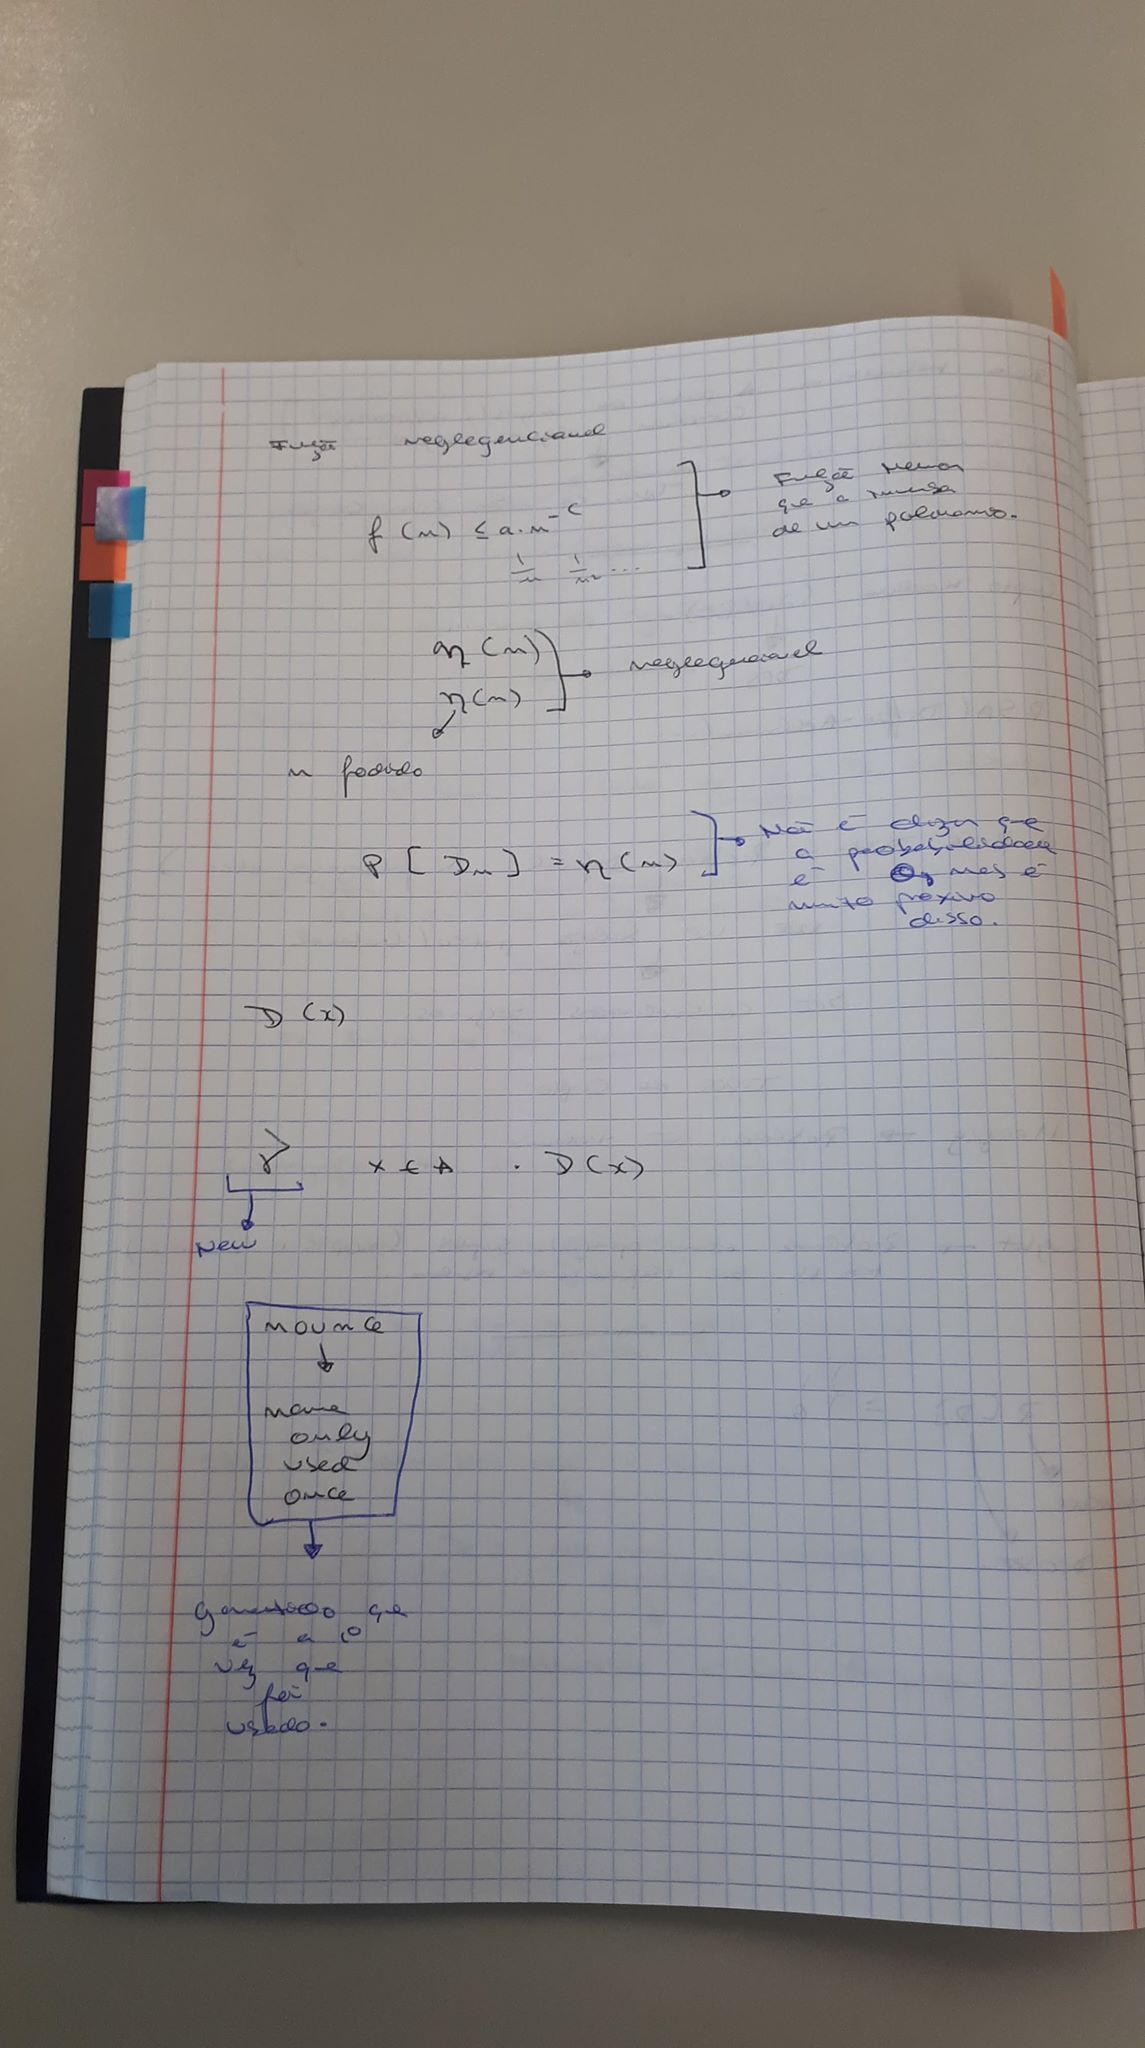 Função neglegenciavel
f(n) ≤ a.n^-c
1/n 1/n² ...
Função menor
que a inversa
de um polinomio.
η(n)
η(n)
neglegenciavel
n
P [ Dn ] = η(n)
Não é dizer que
a probabilidade
é 0, mas é
muito próximo
disso.
D (x)
x ∈ A . D(x)
New
nounce
name
only
used
once
garantido que
é a
vez que
foi
usado.